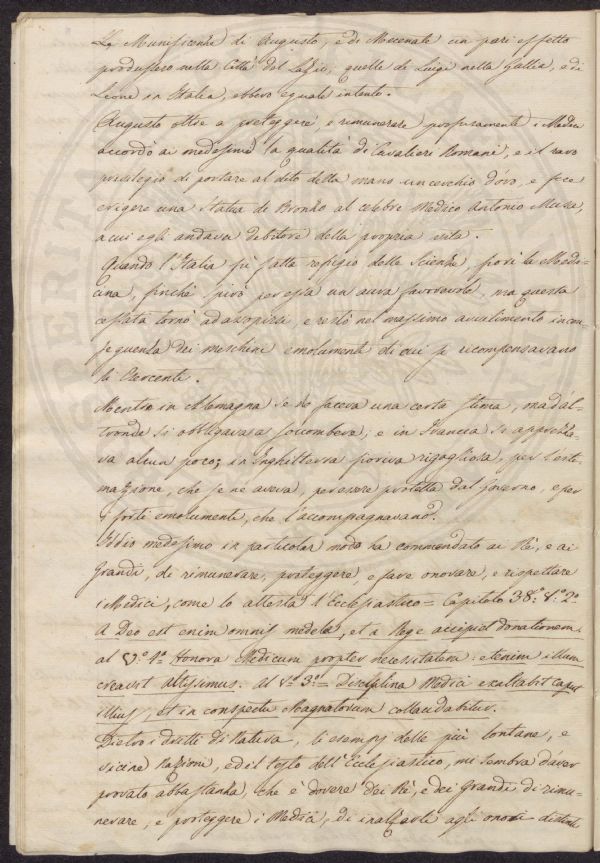 Le Munificenze di Augusto, e di Mecenate un pari effetto
produssero nella Città del Lazio, quelle de Luigi nella Gallia, e di
Leone in Italia, ebbero eguale intento.
Augusto oltre a proteggere, e rimunerare profusamente i Medici
accordò ai medesimi la qualità di Cavalieri Romani, e il raro
privilegio di portare al dito della mano un cerchio d'oro, e fece
erigere una statua di Bronzo al celebre Medico Antonio Musa,
a cui egli andava debitore della propria vita.
Quando l'Italia fù fatta refugio delle Scienze, fiorì la Medi-
cina, finchè spirò per essa un aura favorevole, ma questa
cessata tornò ad assopirsi e restò nel massimo avvilimento in con-
seguenza dei meschini emolumenti di cui si ricompensavano
li Esercenti.
Mentre in Alemagna se ne faceva una certa stima, ma d'al-
tronde si obbligava a soccombere, e in Francia si apprezza-
va alcun poco; in Inghilterra fioriva rigogliosa, per l'esti-
mazione, che se ne aveva, per essere protetta dal Governo, e per
i forti emolumenti, che l'accompagnavano.
Iddio medesimo in particolar modo ha commendato ai Rè, e ai
Grandi, di rimunerare, proteggere, e fare onorare, e rispettare
i Medici, come lo attesta l'Ecclesiastico = Capitolo 38.° V.° 2.°
A Deo est enim omnis medela, et a Rege accipiet donationem.
al V.° 1.° Honora Medicum propter necessitatem: etenim illum
creavit Altissimus. al V.° 3.° = Disciplina Medici exaltabit caput
illius, et in conspectu Magnatorum collaudabitur.
Dietro i dritti di Natura, li esempj delle più lontane, e
vicine Nazioni, ed il testo dell'Ecclesiastico, mi sembra d'aver
provato abbastanza, che è dovere dei Rè, e dei Grandi di rimu-
nerare, e proteggere i Medici, di inalzarli agli onori distinti